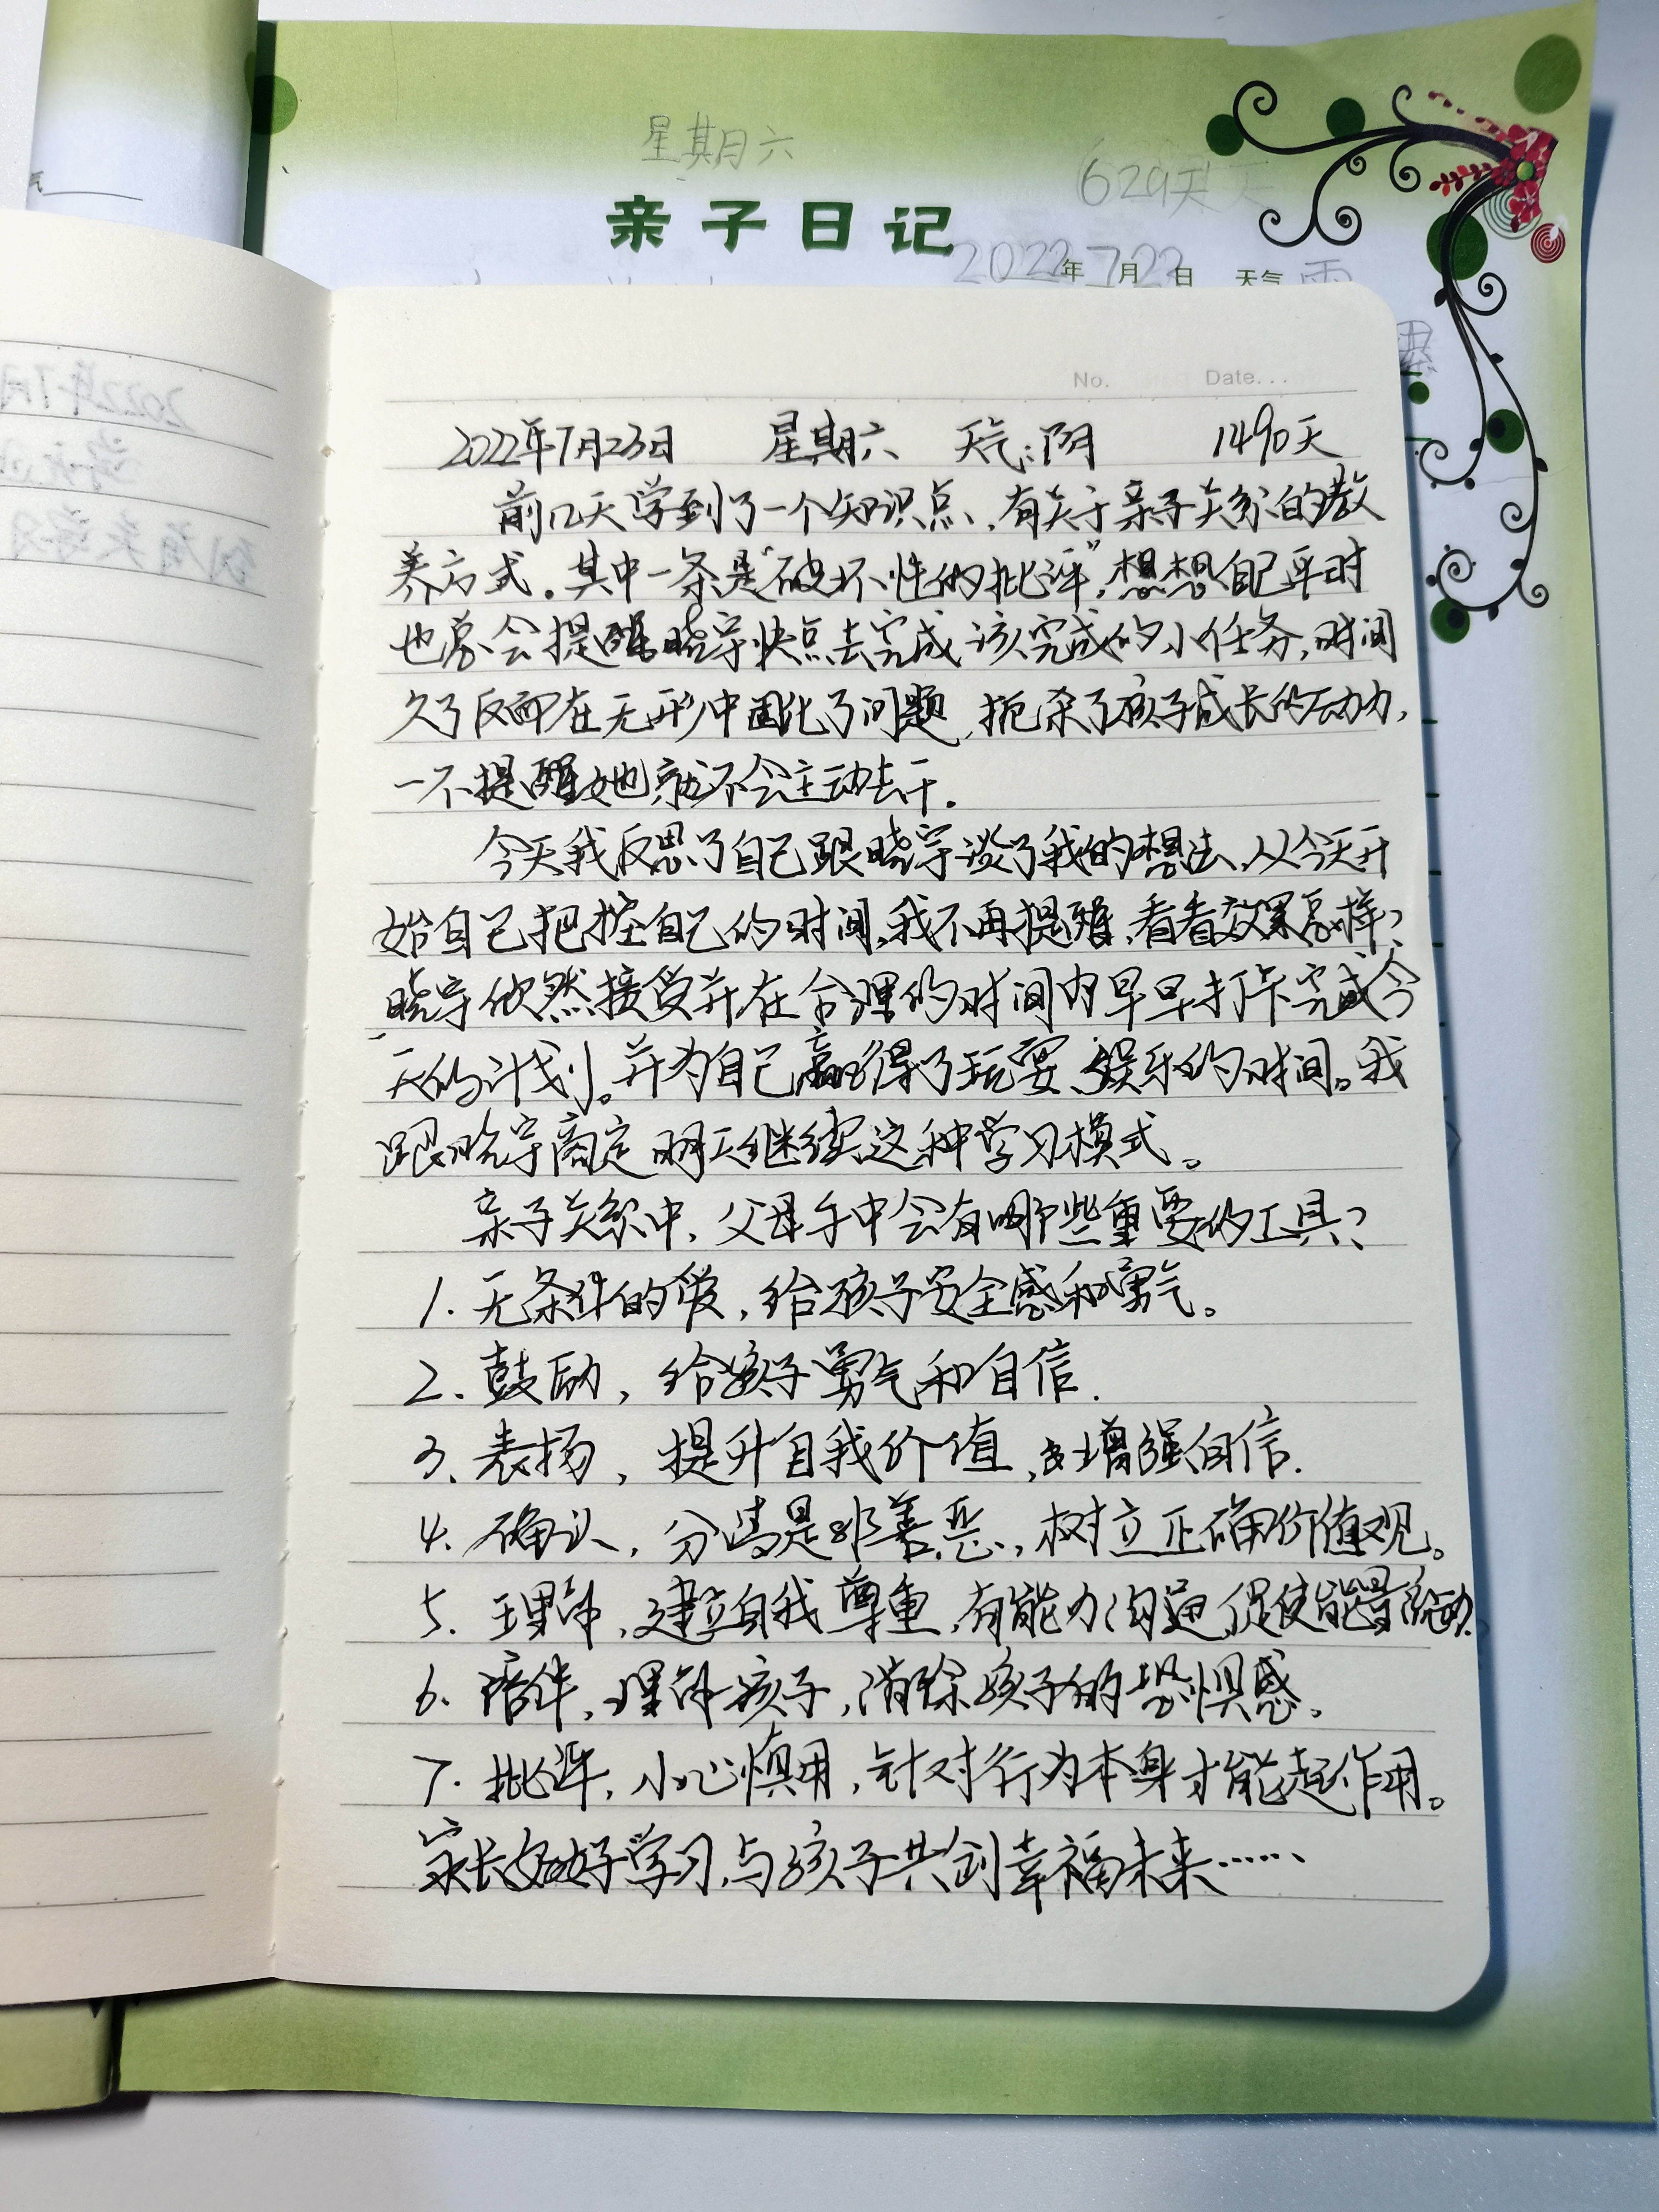 星期六
629天
亲子日记
2022年7月22日 天气 雨
No. Date...
2022年7月23日 星期六 天气:阴 1490天
前几天学到了一个知识点,有关于亲子关系的教
养方式。其中一条是“破坏性的批评”,想想自己平时
也总会提醒晓宇快点去完成该完成的小任务,时间
久了反而在无形中固化了问题,扼杀了孩子成长的动力,
一不提醒她就不会主动去干.
今天我反思了自己跟晓宇谈了我的想法,从今天开
始自己把控自己的时间,我不再提醒,看看效果怎样?
晓宇欣然接受并在合理的时间内早早打卡完成今
天的计划。并为自己赢得了玩耍、娱乐的时间。我
跟晓宇商定明天继续这种学习模式。
亲子关系中,父母手中会有哪些重要的工具?
1.无条件的爱,给孩子安全感和勇气。
2.鼓励,给孩子勇气和自信.
3.表扬,提升自我价值,增强自信.
4.确认,分清是非善恶,树立正确价值观。
5.理解,建立自我尊重,有能力沟通,促使能量流动.
6.陪伴,理解孩子,消除孩子的恐惧感。
7.批评,小心慎用,针对行为本身才能起作用。
家长好好学习,与孩子共创幸福未来……